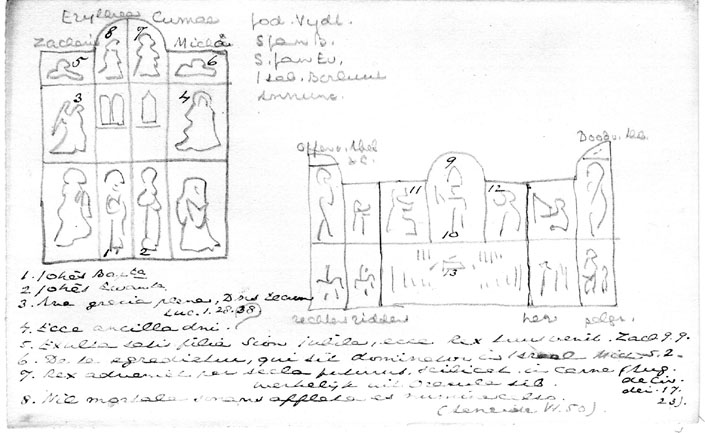 Erythrea Cumae
Zacharia 8 7 Micha
5 6
3 4
1 2
Jod. Vydt.
S. Jan B.
S. Jan Ev.
Isab. Borluut
Annunc.
Offer v. Abel
& C.
Doodsl.
9
11 12
10
13
rechters ridders her. pelgr.
1. Johes Bapta
2 Johes Evanta
3. Ave gracia plena, Dns tecum
Luc. 1. 28. 38)
4. Ecce ancilla dni.
5. Exulta satis filia Sion jubila, ecce Rex tuus venit. Zach 9.9.
6. De te egredietur, qui sit dominator in Israel Mich. 5.2.
7. Rex adveniet per secla futurus, scilicet in carne (Aug.
werkelijk uit Oracula Sib. de Civ.
dei. 17.
23).
8. Nil mortale sonans afflata es numine celso.
(Aeneide VI. 50).